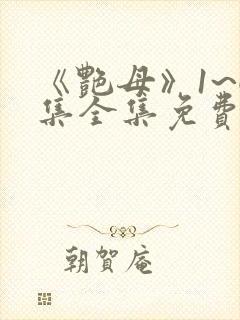 《艷母》1~
集全集免費
朝賀庵